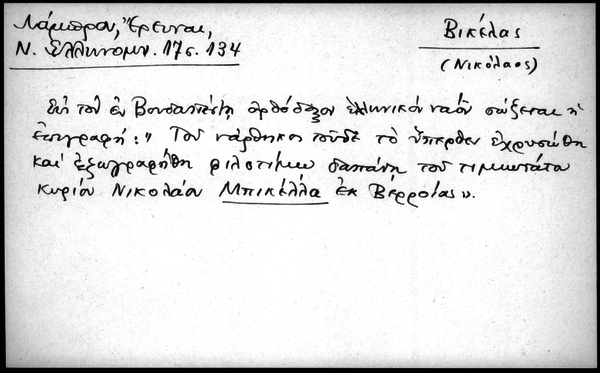 Λάμπρου, Ἔρευναι,
Ν. Ἑλληνομν. 17 σ. 134
Βικέλας
(Νικόλαος)
Ἐπὶ τοῦ ἐν Βουδαπέστῃ ὀρθόδοξον ἑλληνικὸν ναὸν σώζεται ἡ
ἐπιγραφή: "Τοῦ νάρθηκος τοῦδε τὸ ὕπερθεν ἐχρυσώθη
καὶ ἐζωγραφήθη φιλοτίμῳ δαπάνῃ τοῦ τιμιωτάτου
κυρίου Νικολάου Μπικέλλα ἐκ Βερροίας".